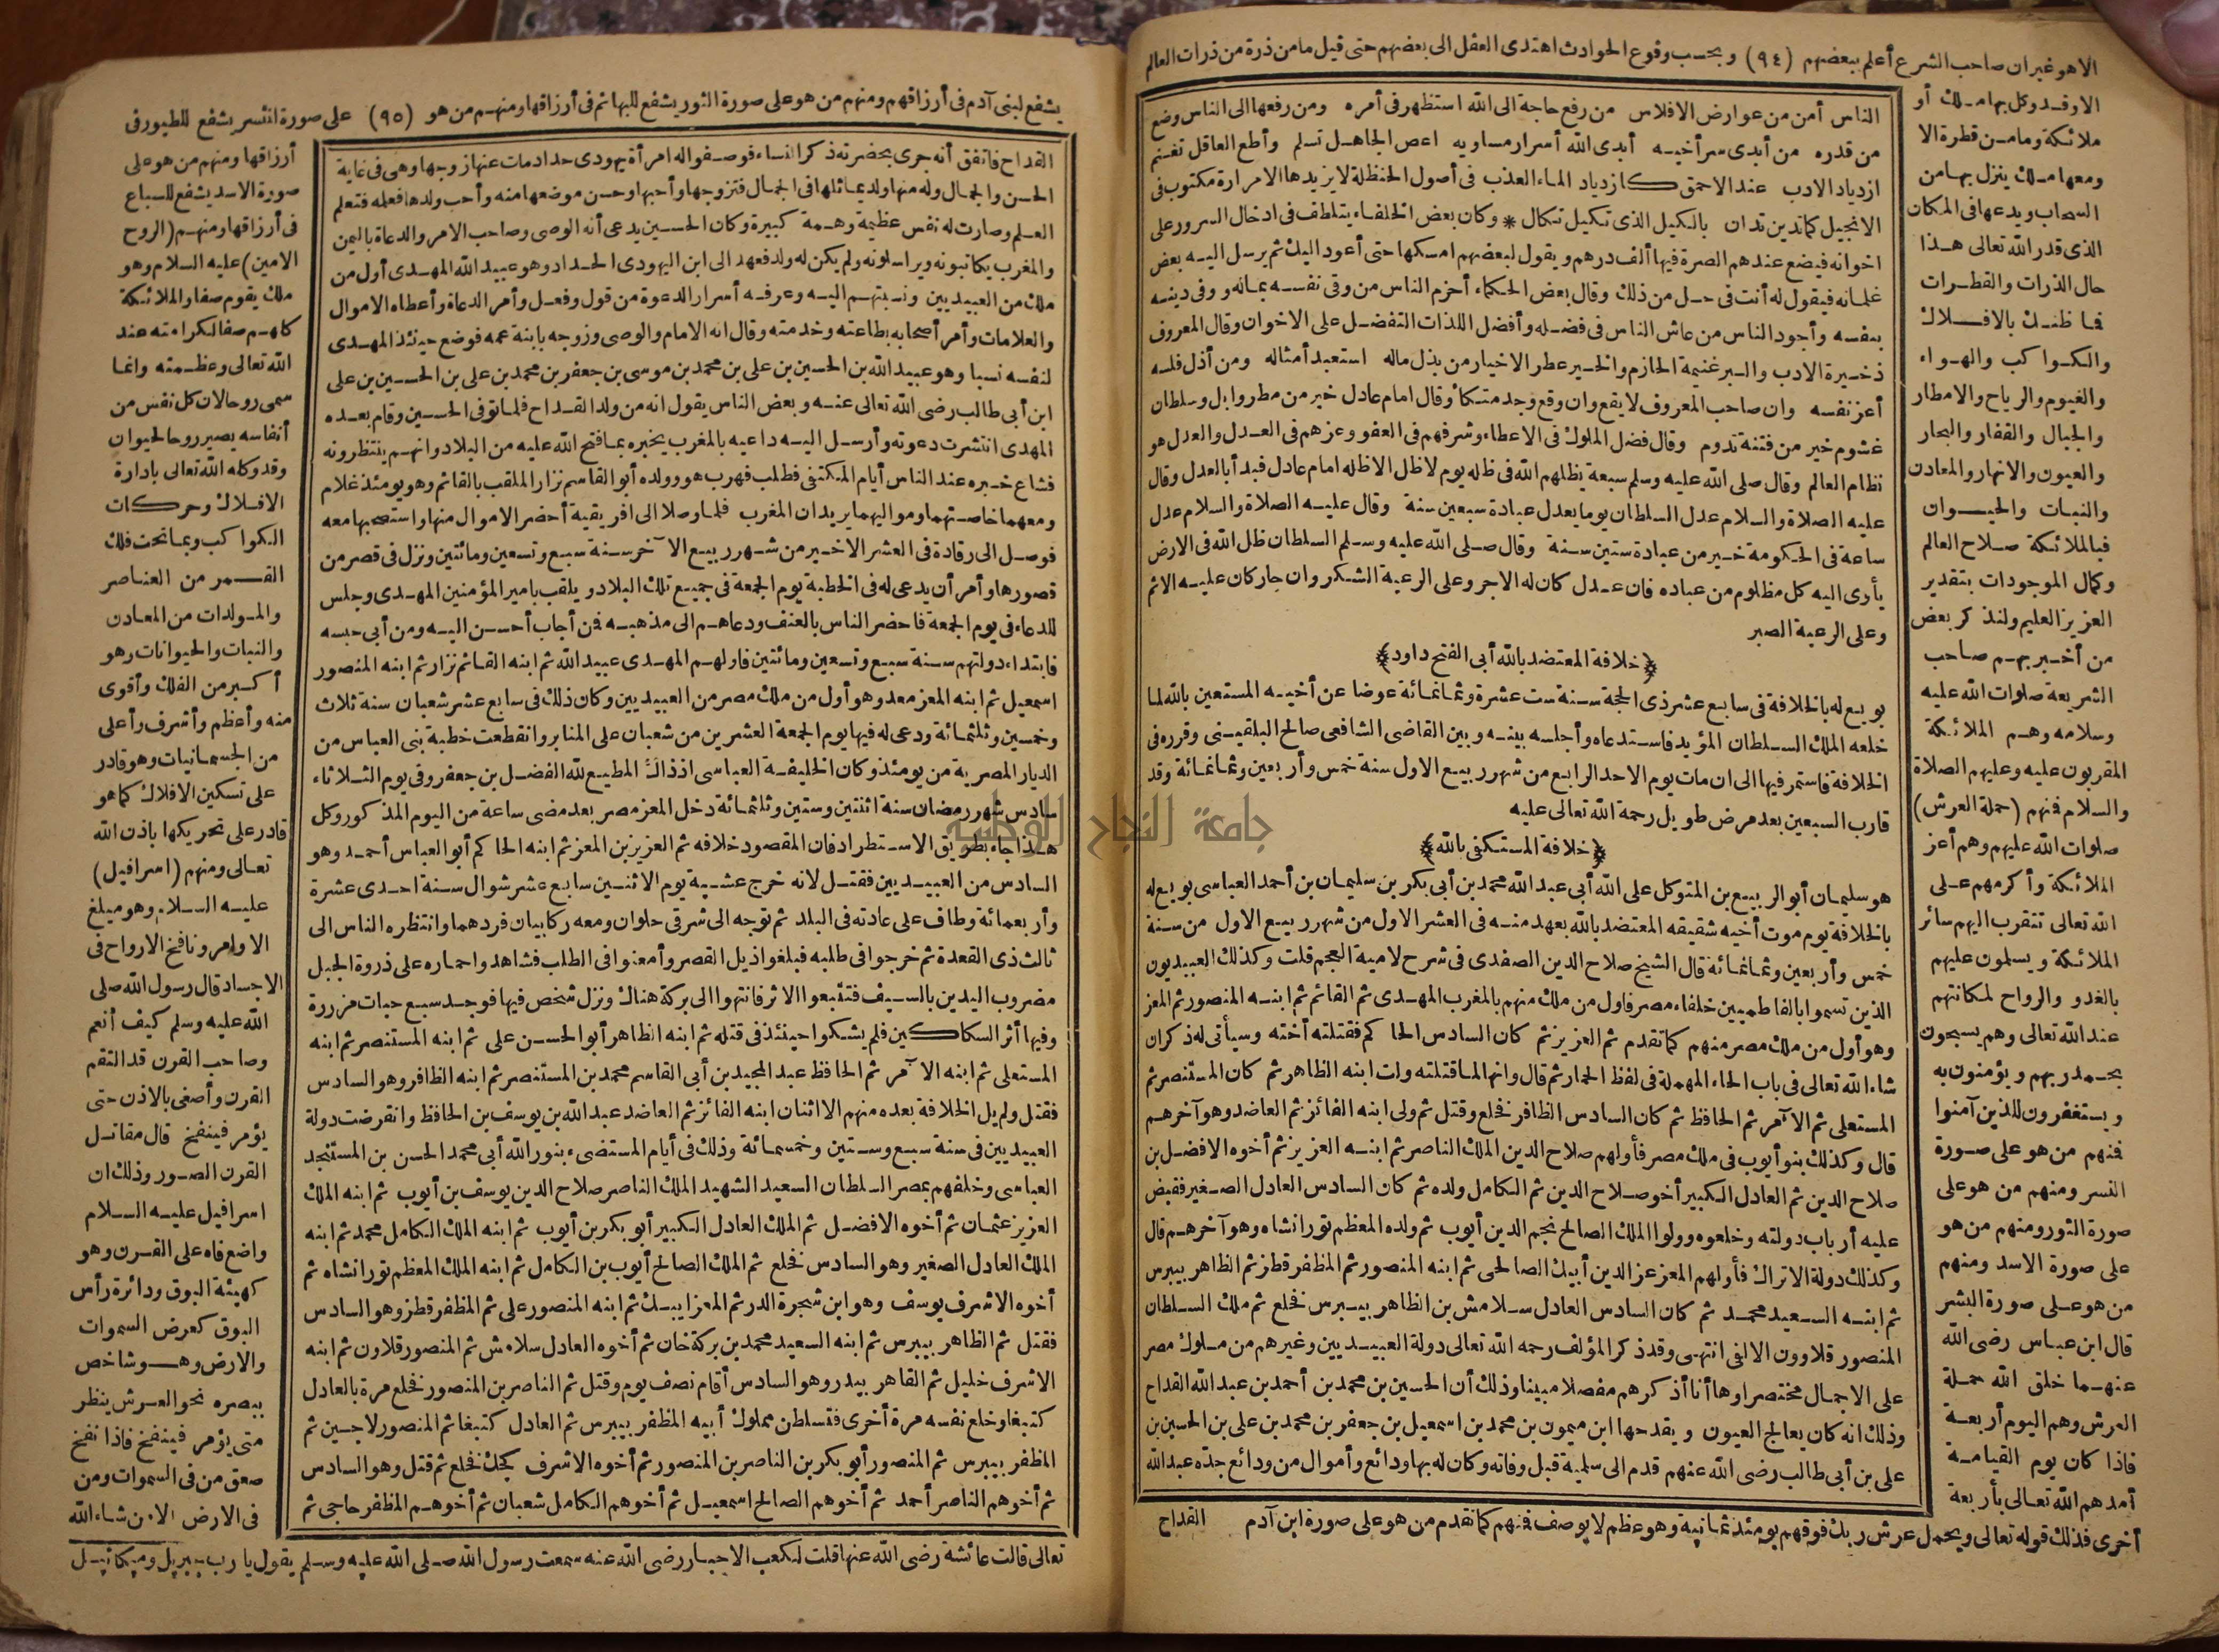 الا هو غير ان صاحب الشرع أعلم ببعضهم (٩٤) وبحسب وقوع الحوادث اهتدى العقل الى بعضهم حتى قيل ما من ذرة من ذرات العالم
الا وقد وكل بها ملك أو
ملائكة وما من قطرة الا
ومعها ملك ينزل بها من
السحاب ويدعها فى المكان
الذى قدر الله تعالى هذا
حال الذرات والقطرات
فما ظنك بالافلاك
والكواكب والهواء
والغيوم والرياح والامطار
والجبال والقفار والبحار
والعيون والانهار والمعادن
والنبات والحيوان
فبالملائكة صلاح العالم
وكمال الموجودات بتقدير
العزيز العليم ولنذكر بعض
من أخبر بهم صاحب
الشريعة صلوات الله عليه
وسلامه وهم الملائكة
المقربون عليه وعليهم الصلاة
والسلام فنهم (حملة العرش)
صلوات الله عليهم وهم أعز
الملائكة وأكرمهم على
الله تعالى تتقرب اليهم سائر
الملائكة ويسلمون عليهم
بالغدو والرواح لمكانتهم
عند الله تعالى وهم يسبحون
بحمد ربهم ويؤمنون به
ويستغفرون للذين آمنوا
فنهم من هو على صورة
النسر ومنهم من هو على
صورة الثور ومنهم من هو
على صورة الاسد ومنهم
من هو على صورة البشر
قال ابن عباس رضى الله
عنهما خلق الله حملة
العرش وهم اليوم أربعة
فاذا كان يوم القيامة
أمدهم الله تعالى بأربعة
أخرى فذلك قوله تعالى ويحمل عرش ربك فوقهم يومئذ ثمانية وهو عظم لا يوصف فنهم كما تقدم من هو على صورة ابن آدم
الناس أمن من عوارض الافلاس من رفع حاجة الى الله استظهر فى أمره ومن رفعها الى الناس وضع
من قدره من أبدى سر أخيه أبدى الله أسرار مساويه اعص الجاهل تسلم وأطع العاقل تغنم
ازدياد الادب عند الاحمق كازدياد الماء العذب فى أصول الحنظلة لا يزيدها الا مرارة مكتوب فى
الانجيل كما تدين تدان بالكيل الذى تكيل تكال * وكان بعض الخلفاء يتلطف فى ادخال السرور على
اخوانه فيضع عندهم الصرة فيها ألف درهم ويقول لبعضهم امسكها حتى أعود اليك ثم يرسل اليه بعض
غلمانه فيقول له أنت فى حل من ذلك وقال بعض الحكماء أحزم الناس من وقى نفسه بماله ووقى دينه
بنفسه وأجود الناس من عاش الناس فى فضله وأفضل اللذات التفضل على الاخوان وقال المعروف
ذخيرة الادب والبر غنيمة الحازم والخير عطر الاخيار من بذل ماله استعبد أمثاله ومن أذل فلسه
أعز نفسه وان صاحب المعروف لا يقع وان وقع وجد متكأ وقال امام عادل خير من مطر وابل وسلطان
غشوم خير من فتنة تدوم وقال فضل الملوك فى الاعطاء وشرفهم فى العفو وعزهم فى العدل والعدل هو
نظام العالم وقال صلى الله عليه وسلم سبعة يظلهم الله فى ظله يوم لا ظل الا ظله امام عادل فبدأ بالعدل وقال
عليه الصلاة والسلام عدل السلطان يوما يعدل عبادة سبعين سنة وقال عليه الصلاة والسلام عدل
ساعة فى الحكومة خير من عبادة ستين سنة وقال صلى الله عليه وسلم السلطان ظل الله فى الارض
يأوى اليه كل مظلوم من عباده فان عدل كان له الاجر وعلى الرعية الشكر وان جار كان عليه الاثم
وعلى الرعية الصبر
﴿خلافة المعتضد بالله أبى الفتح داود﴾
بويع له بالخلافة فى سابع عشر ذى الحجة سنة ست عشرة وثمانمائة عوضا عن أخيه المستعين بالله لما
خلعه الملك السلطان المؤيد فاستدعاه وأجلسه بينه وبين القاضى الشافعى صالح البلقينى وقرره فى
الخلافة فاستمر فيها الى ان مات يوم الاحد الرابع من شهر ربيع الاول سنة خمس وأربعين وثمانمائة وقد
قارب السبعين بعد مرض طويل رحمة الله تعالى عليه
﴿خلافة المستكفى بالله﴾
هو سليمان أبو الربيع بن المتوكل على الله أبى عبد الله محمد بن أبى بكر بن سليمان بن أحمد العباسى بويع له
بالخلافة يوم موت أخيه شقيقه المعتضد بالله بعهد منه فى العشر الاول من شهر ربيع الاول من سنة
خمس وأربعين وثمانمائة قال الشيخ صلاح الدين الصفدى فى شرح لامية العجم قلت وكذلك العبيديون
الذين تسموا بالفاطميين خلفاء مصر فاول من ملك منهم بالمغرب المهدى ثم القائم ثم ابنه المنصور ثم المعز
وهو أول من ملك مصر منهم كما تقدم ثم العزيز ثم كان السادس الحاكم فقتلته أخته وسيأتى له ذكر ان
شاء الله تعالى فى باب الحاء المهملة فى لفظ الحمار ثم قال وانها لما قتلته ولت ابنه الظاهر ثم كان المستنصر ثم
المستعلى ثم الآمر ثم الحافظ ثم كان السادس الظافر فخلع وقتل ثم ولى ابنه الفائز ثم العاضد وهو آخرهم
قال وكذلك بنو أيوب فى ملك مصر فأولهم صلاح الدين الملك الناصر ثم ابنه العزيز ثم أخوه الافضل بن
صلاح الدين ثم العادل الكبير أخو صلاح الدين ثم الكامل ولده ثم كان السادس العادل الصغير فقبض
عليه أرباب دولته وخلعوه وولوا الملك الصالح نجم الدين أيوب ثم ولده المعظم تورانشاه وهو آخرهم قال
وكذلك دولة الاتراك فأولهم المعز عز الدين أيبك الصالحى ثم ابنه المنصور ثم المظفر قطز ثم الظاهر بيبرس
ثم ابنه السعيد محمد ثم كان السادس العادل سلامش بن الظاهر بيبرس فخلع ثم ملك السلطان
المنصور قلاوون الالفى انتهى وقد ذكر المؤلف رحمه الله تعالى دولة العبيديين وغيرهم من ملوك مصر
على الاجمال مختصرا وها أنا أذكرهم مفصلا مبينا وذلك أن الحسين بن محمد بن أحمد بن عبد الله القداح
وذلك انه كان يعالج العيون ويقدحها ابن ميمون بن محمد بن اسمعيل بن جعفر بن محمد بن على بن الحسين بن
على بن أبى طالب رضى الله عنهم قدم الى سلمية قبل وفاته وكان له بها ودائع وأموال من ودائع جده عبد الله
القداح
يشفع لبنى آدم فى أرزاقهم ومنهم من هو على صورة الثور يشفع للبهائم فى أرزاقها ومنهم من هو (٩٥) على صورة النسر يشفع للطيور فى
القداح فاتفق أنه جرى بحضرته ذكر النساء فوصفوا له امرأة يهودى حداد مات عنها زوجها وهى فى غاية
الحسن والجمال وله منها ولد يماثلها فى الجمال فتزوجها وأحبها وحسن موضعها منه وأحب ولدها فعلمه فتعلم
العلم وصارت له نفس عظيمة وهمة كبيرة وكان الحسين يدعى أنه الوصى وصاحب الامر والدعاة باليمن
والمغرب يكاتبونه ويراسلونه ولم يكن له ولد فعهد الى ابن اليهودى الحداد وهو عبيد الله المهدى أول من
ملك من العبيديين ونسبتهم اليه وعرفه أسرار الدعوة من قول وفعل وأمر الدعاة وأعطاه الاموال
والعلامات وأمر أصحابه بطاعته وخدمته وقال انه الامام والوصى وزوجه بابنة عمه فوضع حينئذ المهدى
لنفسه نسبا وهو عبيد الله بن الحسين بن على بن محمد بن موسى بن جعفر بن محمد بن على بن الحسين بن على
ابن أبى طالب رضى الله تعالى عنه وبعض الناس يقول انه من ولد القداح فلما توفى الحسين وقام بعده
المهدى انتشرت دعوته وأرسل اليه داعيه بالمغرب يخبره بما فتح الله عليه من البلاد وانهم ينتظرونه
فشاع خبره عند الناس أيام المكتفى فطلب فهرب هو وولده أبو القاسم نزار الملقب بالقائم وهو يومئذ غلام
ومعهما خاصتهما ومواليهما يريدان المغرب فلما وصلا الى افريقية أحضر الاموال منها واستصحبها معه
فوصل الى رقادة فى العشر الاخير من شهر ربيع الآخر سنة سبع وتسعين ومائتين ونزل فى قصر من
قصورها وأمر أن يدعى له فى الخطبة يوم الجمعة فى جميع تلك البلاد ويلقب بامير المؤمنين المهدى وجلس
للدعاء فى يوم الجمعة فاحضر الناس بالعنف ودعاهم الى مذهبه فمن أجاب أحسن اليه ومن أبى حبسه
فابتداء دولتهم سنة سبع وتسعين ومائتين فاولهم المهدى عبيد الله ثم ابنه القائم نزار ثم ابنه المنصور
اسمعيل ثم ابنه المعز معد وهو أول من ملك مصر من العبيديين وكان ذلك فى سابع عشر شعبان سنة ثلاث
وخمسين وثلثمائة ودعى له فيها يوم الجمعة العشرين من شعبان على المنابر وانقطعت خطبة بنى العباس من
الديار المصرية من يومئذ وكان الخليفة العباسى اذ ذاك المطيع لله الفضل بن جعفر وفى يوم الثلاثاء
سادس شهر رمضان سنة اثنتين وستين وثلثمائة دخل المعز مصر بعد مضى ساعة من اليوم المذكور وكل
هذا جاء بطريق الاستطراد فان المقصود خلافه ثم العزيز بن المعز ثم ابنه الحاكم أبو العباس أحمد وهو
السادس من العبيديين فقتل لانه خرج عشية يوم الاثنين سابع عشر شوال سنة احدى عشرة
وأربعمائة وطاف على عادته فى البلد ثم توجه الى شرقى حلوان ومعه ركابيان فردهما وانتظره الناس الى
ثالث ذى القعدة ثم خرجوا فى طلبه فبلغوا ذيل القصر وأمعنوا فى الطلب فشاهدوا حماره على ذروة الجبل
مضروب اليدين بالسيف فتتبعوا الاثر فانتهوا الى بركة هناك ونزل شخص فيها فوجد سبع جبات مزررة
وفيها أثر السكاكين فلم يشكوا حينئذ فى قتله ثم ابنه الظاهر أبو الحسن على ثم ابنه المستنصر ثم ابنه
المستعلى ثم ابنه الآمر ثم الحافظ عبد المجيد بن أبى القاسم محمد بن المستنصر ثم ابنه الظافر وهو السادس
فقتل ولم يل الخلافة بعده منهم الا اثنان ابنه الفائز ثم العاضد عبد الله بن يوسف بن الحافظ وانقرضت دولة
العبيديين فى سنة سبع وستين وخمسمائة وذلك فى أيام المستضىء بنور الله أبى محمد الحسن بن المستنجد
العباسى وخلفهم بمصر السلطان السعيد الشهيد الملك الناصر صلاح الدين يوسف بن أيوب ثم ابنه الملك
العزيز عثمان ثم أخوه الافضل ثم الملك العادل الكبير أبو بكر بن أيوب ثم ابنه الملك الكامل محمد ثم ابنه
الملك العادل الصغير وهو السادس فخلع ثم الملك الصالح أيوب بن الكامل ثم ابنه الملك المعظم تورانشاه ثم
أخوه الاشرف يوسف وهو ابن شجرة الدر ثم المعز ايبك ثم ابنه المنصور على ثم المظفر قطز وهو السادس
فقتل ثم الظاهر بيبرس ثم ابنه السعيد محمد بن بركة خان ثم أخوه العادل سلامش ثم المنصور قلاون ثم ابنه
الاشرف خليل ثم القاهر بيدر وهو السادس أقام نصف يوم وقتل ثم الناصر بن المنصور فخلع مرة بالعادل
كتبغا وخلع نفسه مرة أخرى فتسلطن مملوك أبيه المظفر بيبرس ثم العادل كتبغا ثم المنصور لاجين ثم
المظفر بيبرس ثم المنصور أبو بكر بن الناصر بن المنصور ثم أخوه الاشرف كجك فخلع ثم قتل وهو السادس
ثم أخوهم الناصر أحمد ثم أخوهم الصالح اسمعيل ثم أخوهم الكامل شعبان ثم أخوهم المظفر حاجى ثم
أرزاقها ومنهم من هو على
صورة الاسد يشفع للسباع
فى أرزاقها ومنهم (الروح
الامين) عليه السلام وهو
ملك يقوم صفا والملائكة
كلهم صفا لكرامته عند
الله تعالى وعظمته وانما
سمى روحا لان كل نفس من
أنفاسه يصير روحا لحيوان
وقد وكله الله تعالى بادارة
الافلاك وحركات
الكواكب وبما تحت فلك
القمر من العناصر
والمولدات من المعادن
والنبات والحيوانات وهو
أكبر من الفلك وأقوى
منه وأعظم وأشرف وأعلى
من الجسمانيات وهو قادر
على تسكين الافلاك كما هو
قادر على تحريكها باذن الله
تعالى ومنهم (اسرافيل)
عليه السلام وهو مبلغ
الاوامر ونافخ الارواح فى
الاجساد قال رسول الله صلى
الله عليه وسلم كيف أنعم
وصاحب القرن قد التقم
القرن وأصغى بالاذن حتى
يؤمر فينفخ قال مقاتل
القرن الصور وذلك ان
اسرافيل عليه السلام
واضع فاه على القرن وهو
كهيئة البوق ودائرة رأس
البوق كعرض السموات
والارض وهو شاخص
ببصره نحو العرش ينظر
متى يؤمر فينفخ فاذا نفخ
صعق من فى السموات ومن
فى الارض الا من شاء الله
تعالى قالت عائشة رضى الله عنها قلت لكعب الاحبار رضى الله عنه سمعت رسول الله صلى الله عليه وسلم يقول يا رب جبريل وميكائيل
جامعة النجاح الوطنية